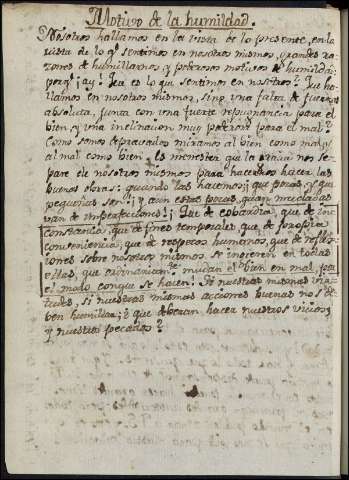 Motivo de la humildad.
Nosotros hallamos en la vista de lo presente, en la
vista de lo q.e sentimos en nosotros mismos, grandes ra-
zones de humillarnos, y poderosos motivos de humildad:
porq.e ¡ay! Que es lo que sentimos en nosotros? Que ha-
llamos en nosotros mismos, sino una falta de fuerzas
absoluta, junta con una fuerte repugnancia para el
bien, y una inclinacion muy para el mal?
Como somos depravados miramos al bien como mal, y
al mal como bien: es menester que la gracia no se
pare de nosotros mismos para hacernos hacer las
buenas obras: quando las hacemos, ¡que pocas, y que
pequeñas son!; y aun estas pocas, quan mezcladas
van de imperfecciones!; Que de cobardia, que de in-
constancia, que de fines temporales, que de propia
conveniencia, que de respetos humanos, que de refle-
xiones sobre nosotros mismos se ingieren en todas
ellas, que mudan el bien en mal, por
el modo conque se hacen! Si nuestras mismas
si nuestras mismas acciones buenas nos de-
ben humillar; ¿que deberan hacer nuestros vicios,
y nuestros pecados?